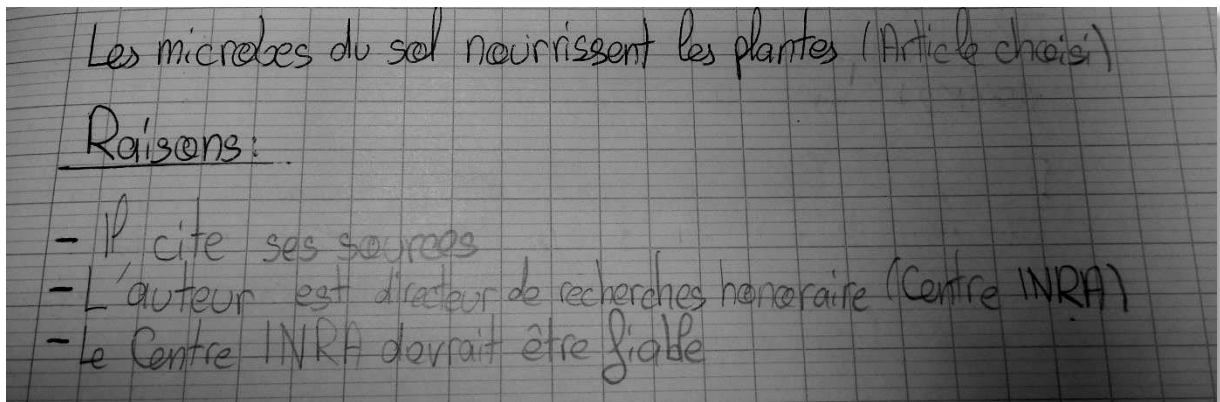 Les microbes du sol nourrissent les plantes (Article choisi)
Raisons:
- Il cite ses sources
- L'auteur est directeur de recherches honoraire (Centre INRA)
- Le Centre INRA devrait être fiable